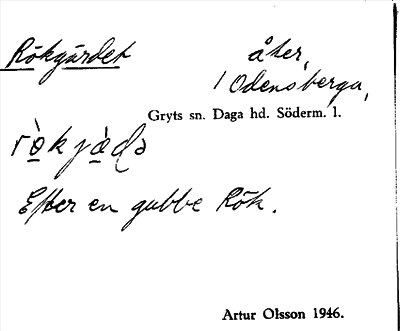 Rökgärdet åker,
/ Odensberga,
Gryts sn. Daga hd. Söderm. l.
Efter en gubbe Rök.
Artur Olsson 1946.